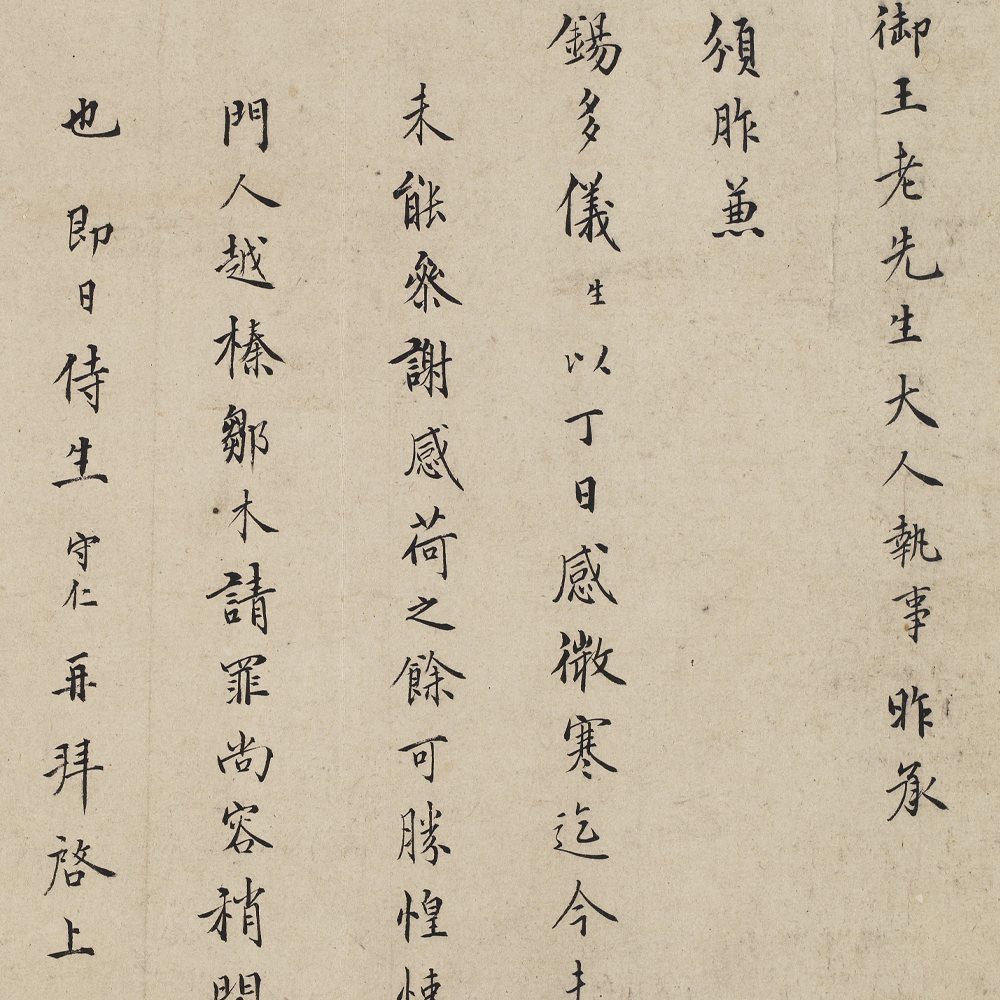 御王老先生大人執事昨承
頒胙兼
錫多儀生以丁日感微寒迄今
未能叅謝感荷之餘可勝惶悚
門人越榛鄒木請罪尚容稍間
也即日侍生守仁再拜啓上